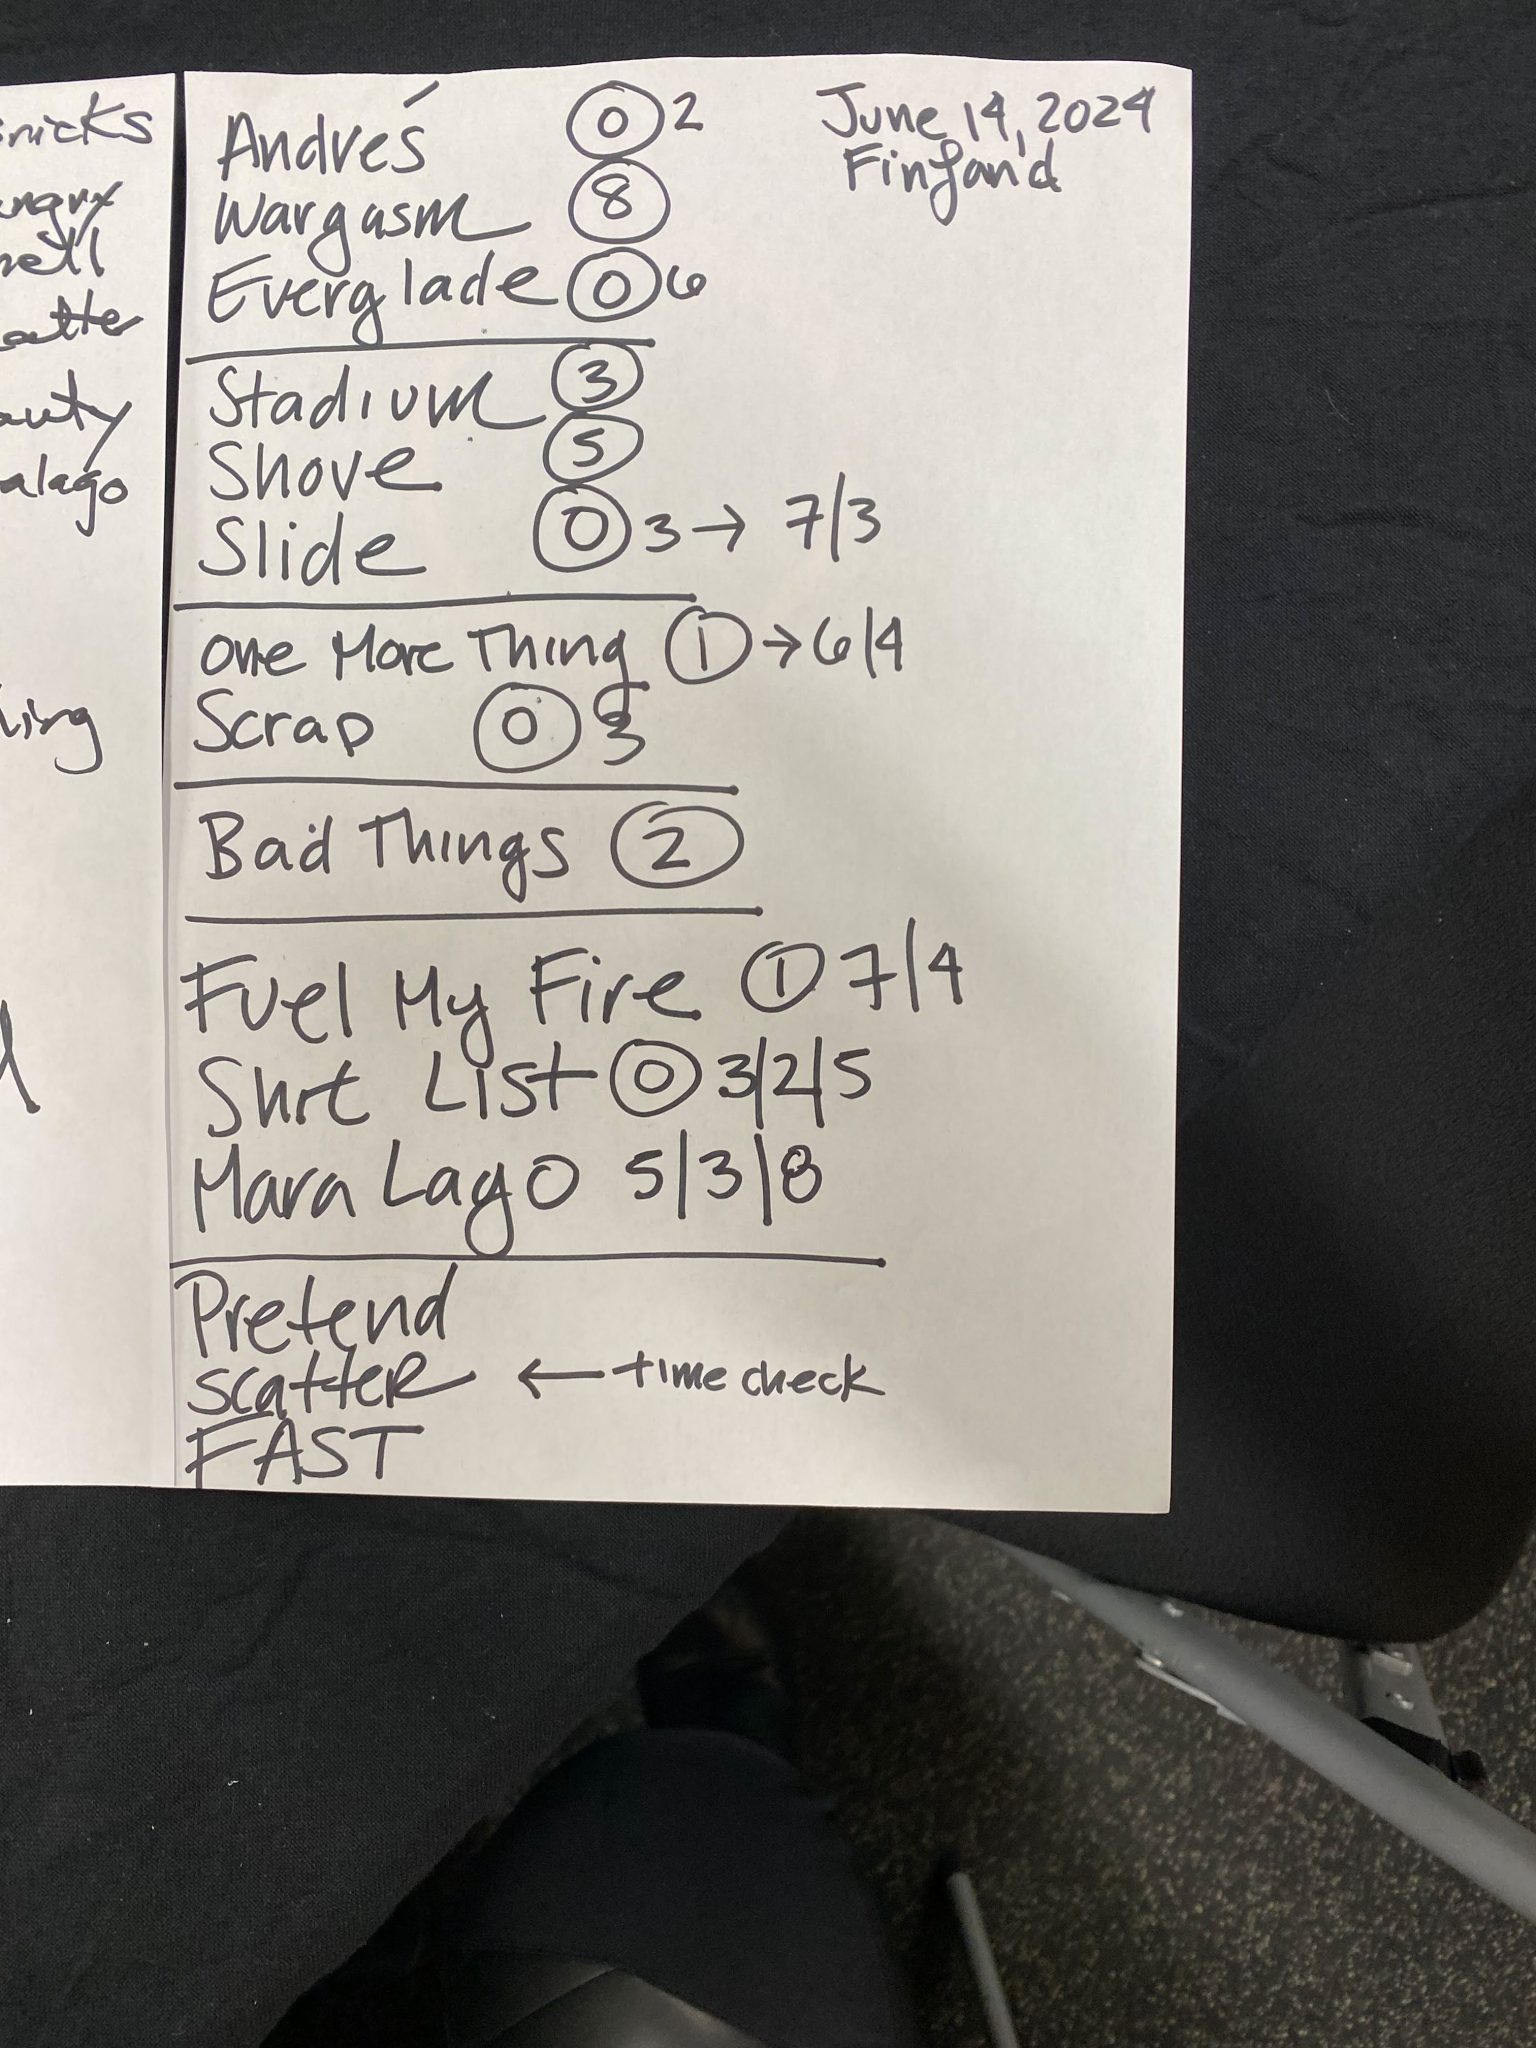 Andrés 0 2
Wargasm 8
Everglade 0 6
Stadium 3
Shove 5
Slide 0 3 → 7/3
One More Thing 1 → 6/4
Scrap 0 3
Bad Things 2
Fuel My Fire 1 7/4
Shit List 0 3/2/5
Mara Lago 5/3/8
Pretend
Scatter ← time check
FAST
June 14, 2024
Finland
nicks
alago